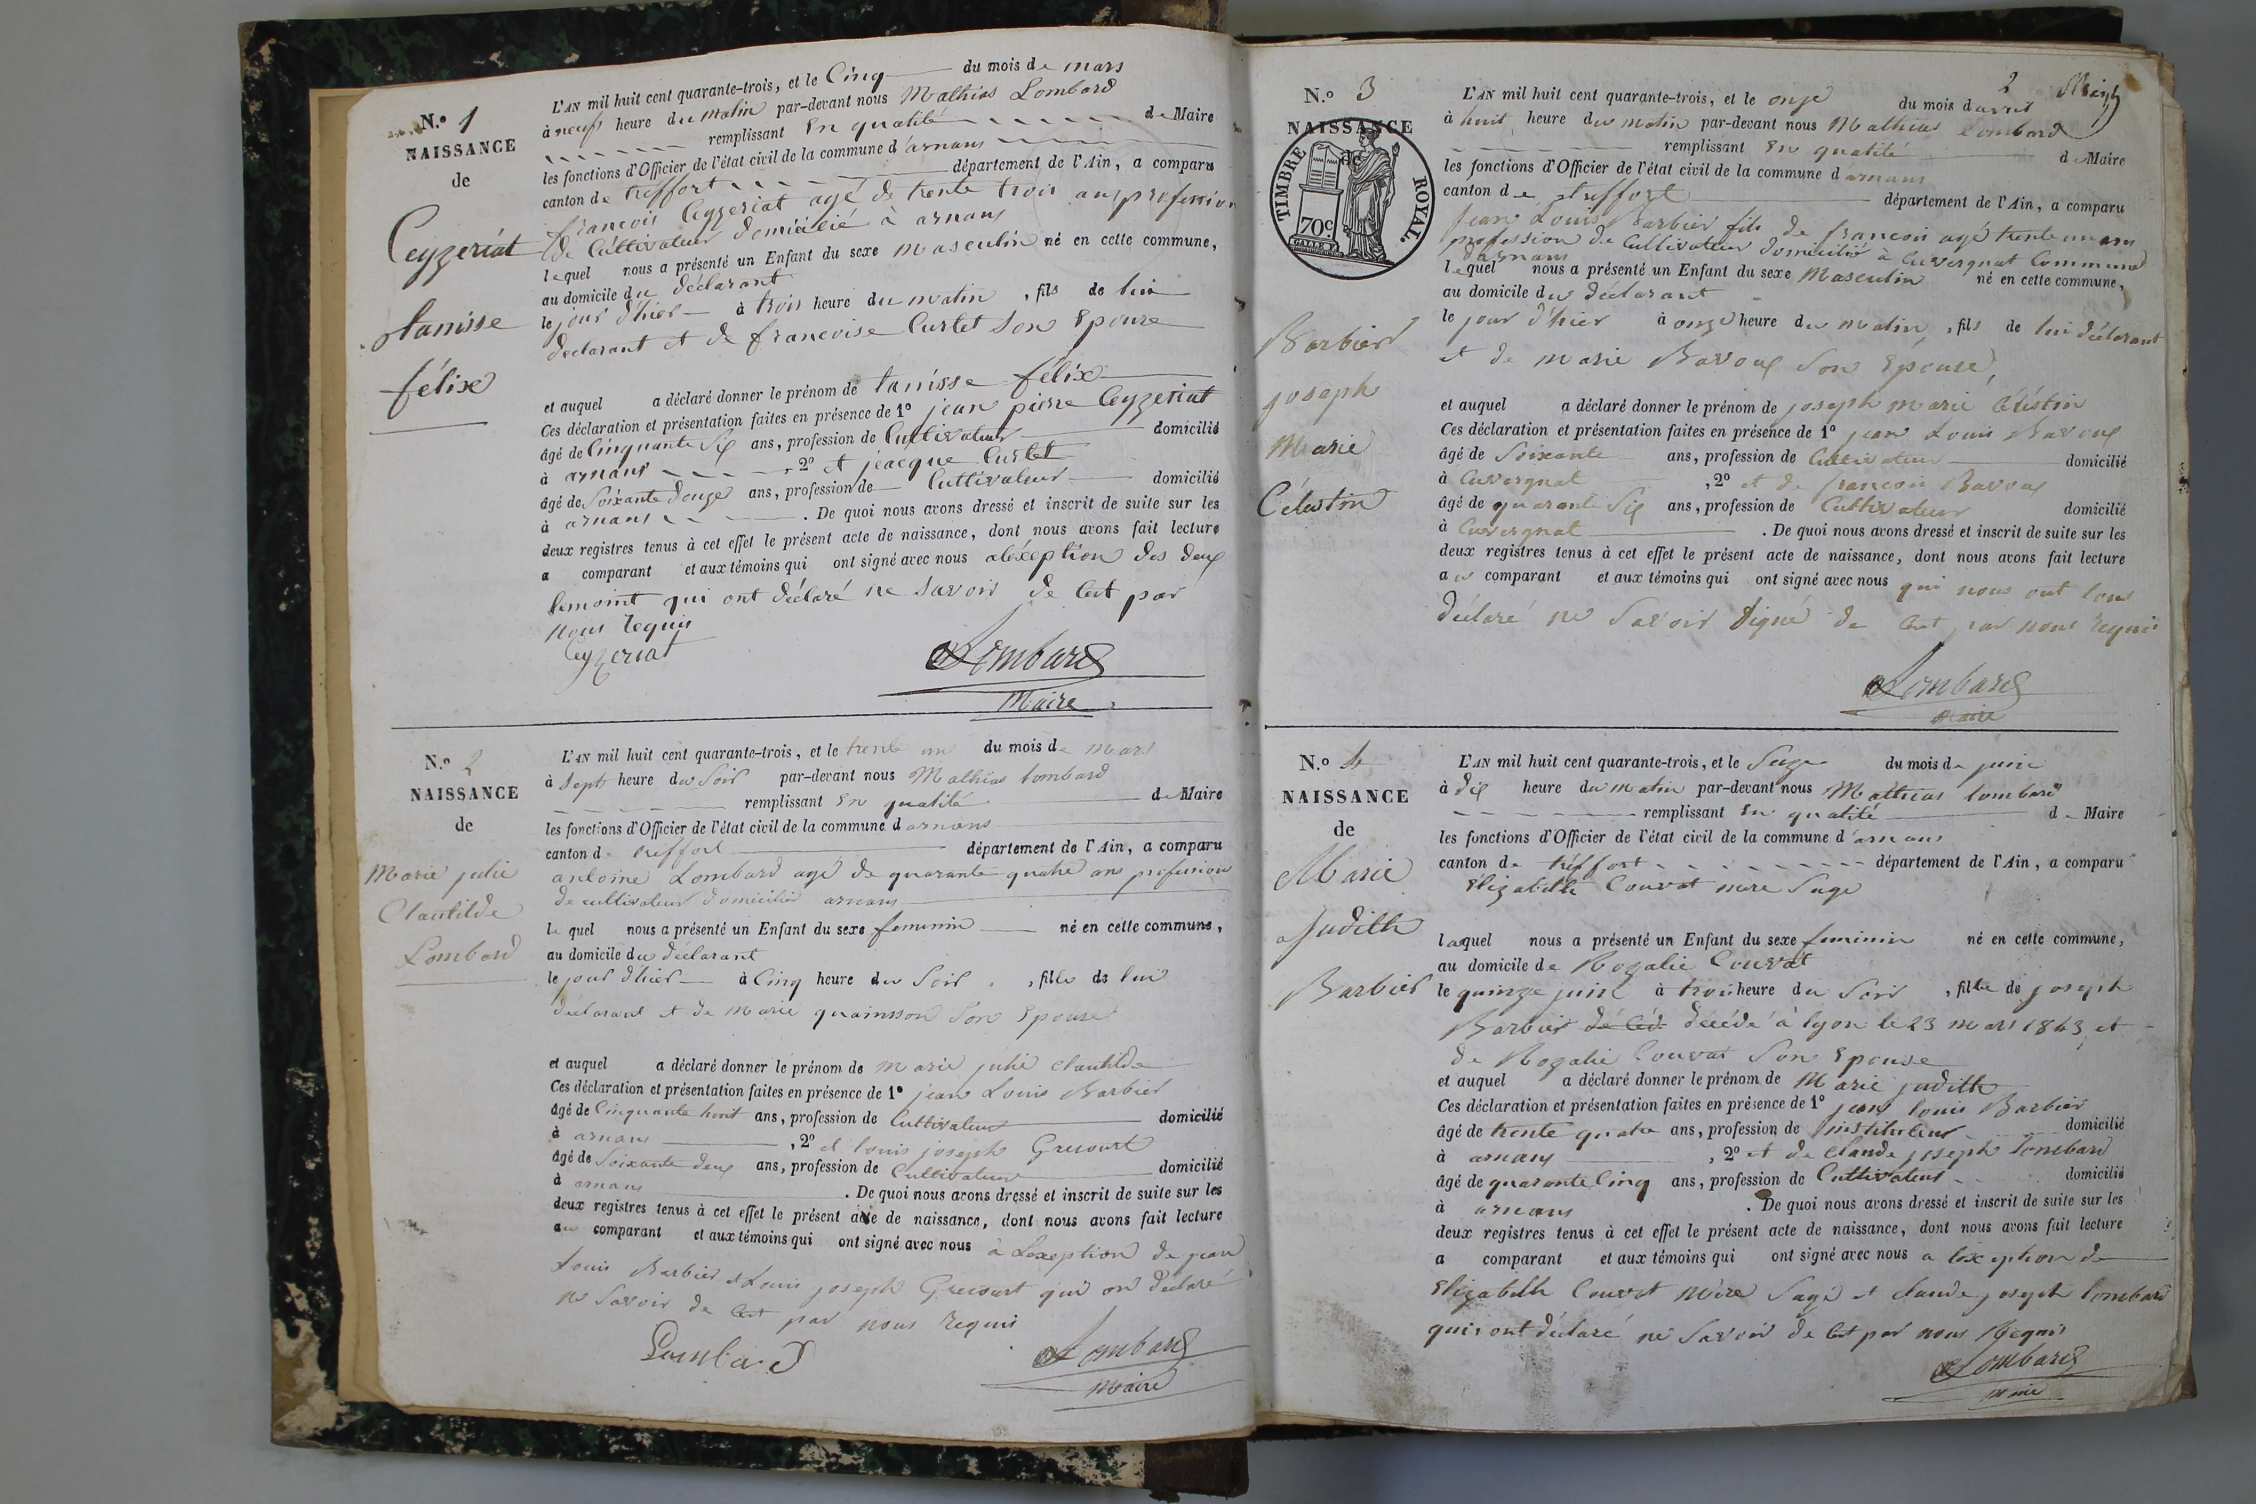 N.º 1
NAISSANCE
de
Ceyzeriat
tanisse
félix
L'AN mil huit cent quarante-trois, et le Cinq du mois de mars
à neuf heure du matin par-devant nous Mathias Lombard
remplissant En qualité de Maire
les fonctions d'Officier de l'état civil de la commune d'arnans
canton de treffort département de l'Ain, a comparu
francois Ceyzeriat agé de trente trois ans profession
de Cultivateur domicilié à arnans
lequel nous a présenté un Enfant du sexe masculin né en cette commune,
au domicile du déclarant
le jour d'hier à trois heure du matin, fils de lui
declarant et de francoise Curtet son Epouse
et auquel a déclaré donner le prénom de tanisse félix
Ces déclaration et présentation faites en présence de 1º jean pierre Ceyzeriat
âgé de Cinquante Six ans, profession de Cultivateur domicilié
à arnans, 2º et jeacque Curtet
âgé de Soixante douze ans, profession de Cultivateur domicilié
à arnans. De quoi nous avons dressé et inscrit de suite sur les
deux registres tenus à cet effet le présent acte de naissance, dont nous avons fait lecture
a comparant et aux témoins qui ont signé avec nous aléxeption des deux
temoint qui ont déclaré ne Savoir de Cet par
nous requis
Ceyzeriat
Lombard
Maire
N.º 2
NAISSANCE
de
Marie julie
Clautilde
Lombard
L'AN mil huit cent quarante-trois, et le trente un du mois de mars
à Sept heure du Soir par-devant nous Mathias Lombard
remplissant En qualité de Maire
les fonctions d'Officier de l'état civil de la commune d arnans
canton d treffort département de l'Ain, a comparu
antoine Lombard agé de quarante quatre ans profession
de cultivateur domicilié arnans
le quel nous a présenté un Enfant du sexe feminin né en cette commune,
au domicile du déclarant
le jour d'hier à Cinq heure du Soir, fille de lui
déclarant et de Marie quainsson Son Epouse
et auquel a déclaré donner le prénom de marie julie clautilde
Ces déclaration et présentation faites en présence de 1º jean Louis Barbier
âgé de Cinquante huit ans, profession de Cultivateur domicilié
à arnans, 2º et louis joseph Grecourt
âgé de Soixante deux ans, profession de Cultivateur domicilié
à arnans. De quoi nous avons dressé et inscrit de suite sur les
deux registres tenus à cet effet le présent acte de naissance, dont nous avons fait lecture
au comparant et aux témoins qui ont signé avec nous à Lexeption de jean
Louis Barbier et Louis joseph Grecourt qui on déclaré
ne Savoir de Cet par nous requis
Lombard
Lombard
Maire
2
N.º 3
NAISSANCE
TIMBRE ROYAL.
70 c.
Barbier
joseph
Marie
Célestin
L'AN mil huit cent quarante-trois, et le onze du mois d'avril
à huit heure du matin par-devant nous Mathias Lombard
remplissant En qualité d Maire
les fonctions d'Officier de l'état civil de la commune d arnans
canton de treffort département de l'Ain, a comparu
Jean Louis Barbier fils de francois agé trente un ans
profession de Cultivateur domicilié à Cuvergnat Commune
arnans
lequel nous a présenté un Enfant du sexe Masculin né en cette commune,
au domicile du déclarant
le jour d'hier à onze heure du matin, fils de lui déclarant
et de marie Bavoux Son Epouse
et auquel a déclaré donner le prénom de joseph marie Célestin
Ces déclaration et présentation faites en présence de 1º jean Louis Bavoux
âgé de Soixante ans, profession de Cultivateur domicilié
à Cuvergnat, 2º et de francois Bavoux
âgé de quarante Six ans, profession de Cultivateur domicilié
à Cuvergnat. De quoi nous avons dressé et inscrit de suite sur les
deux registres tenus à cet effet le présent acte de naissance, dont nous avons fait lecture
au comparant et aux témoins qui ont signé avec nous qui nous ont tous
déclaré ne Savoir Signé de Cet par nous requis
Lombard
Maire
N.º 4
NAISSANCE
de
Marie
Judith
Barbier
L'AN mil huit cent quarante-trois, et le Seize du mois de juin
à dix heure du matin par-devant nous Mathias Lombard
remplissant En qualité d Maire
les fonctions d'Officier de l'état civil de la commune d'arnans
canton de treffort département de l'Ain, a comparu
Elizabeth Couvat mere Sage
laquel nous a présenté un Enfant du sexe feminin né en cette commune,
au domicile de Rozalie Couvat
le quinze juin à trois heure du Soir, fille de joseph
Barbier dé Céd décédé à lyon le 23 mars 1843 et
de Rozalie Couvat Son Epouse
et auquel a déclaré donner le prénom de Marie judith
Ces déclaration et présentation faites en présence de 1º jean louis Barbier
âgé de trente quatre ans, profession de instituteur domicilié
à arnans, 2º et de claude joseph Lombard
âgé de quarante Cinq ans, profession de Cultivateur domicilié
à arnans. De quoi nous avons dressé et inscrit de suite sur les
deux registres tenus à cet effet le présent acte de naissance, dont nous avons fait lecture
a comparant et aux témoins qui ont signé avec nous a lexeption de
Elizabeth Couvat Mère Sage et claude joseph Lombard
qui ont déclaré ne Savoir de Cet par nous Requis
Lombard
Maire